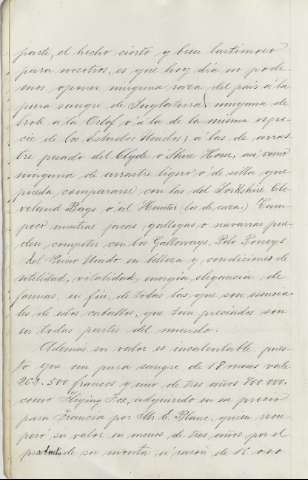 parte, el hecho cierto y bien lastimoso
para nosotros, es que hoy dia no pode-
mos oponer ninguna raza del pais á la
pura sangre de Inglaterra, ninguna de
trote á la Orlof, ó á la de la misma espe-
cie de los Estados Unidos, á las de arras-
tre pesado del Clyde ó Shire Horse, asi como
ninguna de arrastre ligero ó de silla que
pueda compararse con las del Yorkshire Cle-
veland Bays ó el Hunter (los de caza.) Tam-
poco nuestras jacas gallegas ó navarras pue-
den competir con los Galloways, Polo Poneys
del Reino Unido en belleza y condiciones de
utilidad, vitalidad, energia, elegancia de
formas, en fin, de todas las que son esencia-
les de estos caballos, que tan preciados son
en todas partes del mundo.
Además su valor es incalculable, pues-
to que un pura sangre de 18 meses vale
262.500 francos y uno de tres años 900.000,
como Flying Fox, adquirido en su precio
para Francia por Mr. E. Blanc, quien recu-
peró su valor en menos de tres años por el
producto de su monta, á razón de